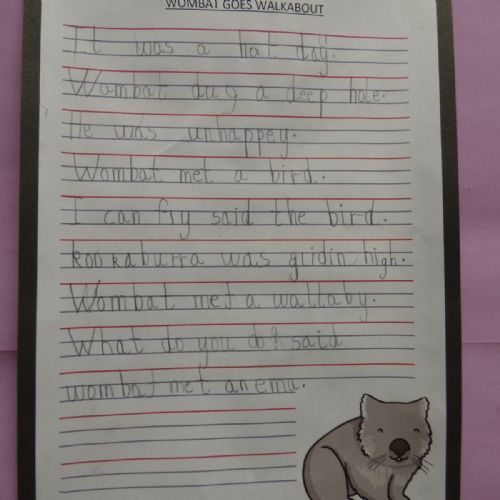 WOMBAT GOES WALKABOUT
It was a hot day.
Wombat dug a deep hole.
He was unhappey.
Wombat met a bird.
I can fly said the bird.
kookaburra was glidin high.
Wombat met a wallaby.
What do you do? said
wombat met an emu.